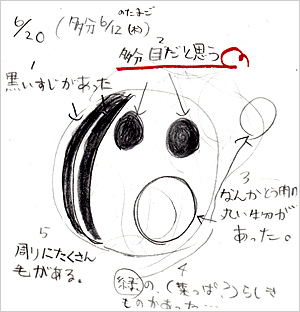 6/20
(多分6/12(木)
のたまご
2
多分目だと思う
1
黒いすじがあった
3
なんかとう明の
丸い生分が
あった。
5
周りにたくさん
毛がある。
4
緑の、(葉っぱ?)らしき
ものがあった…